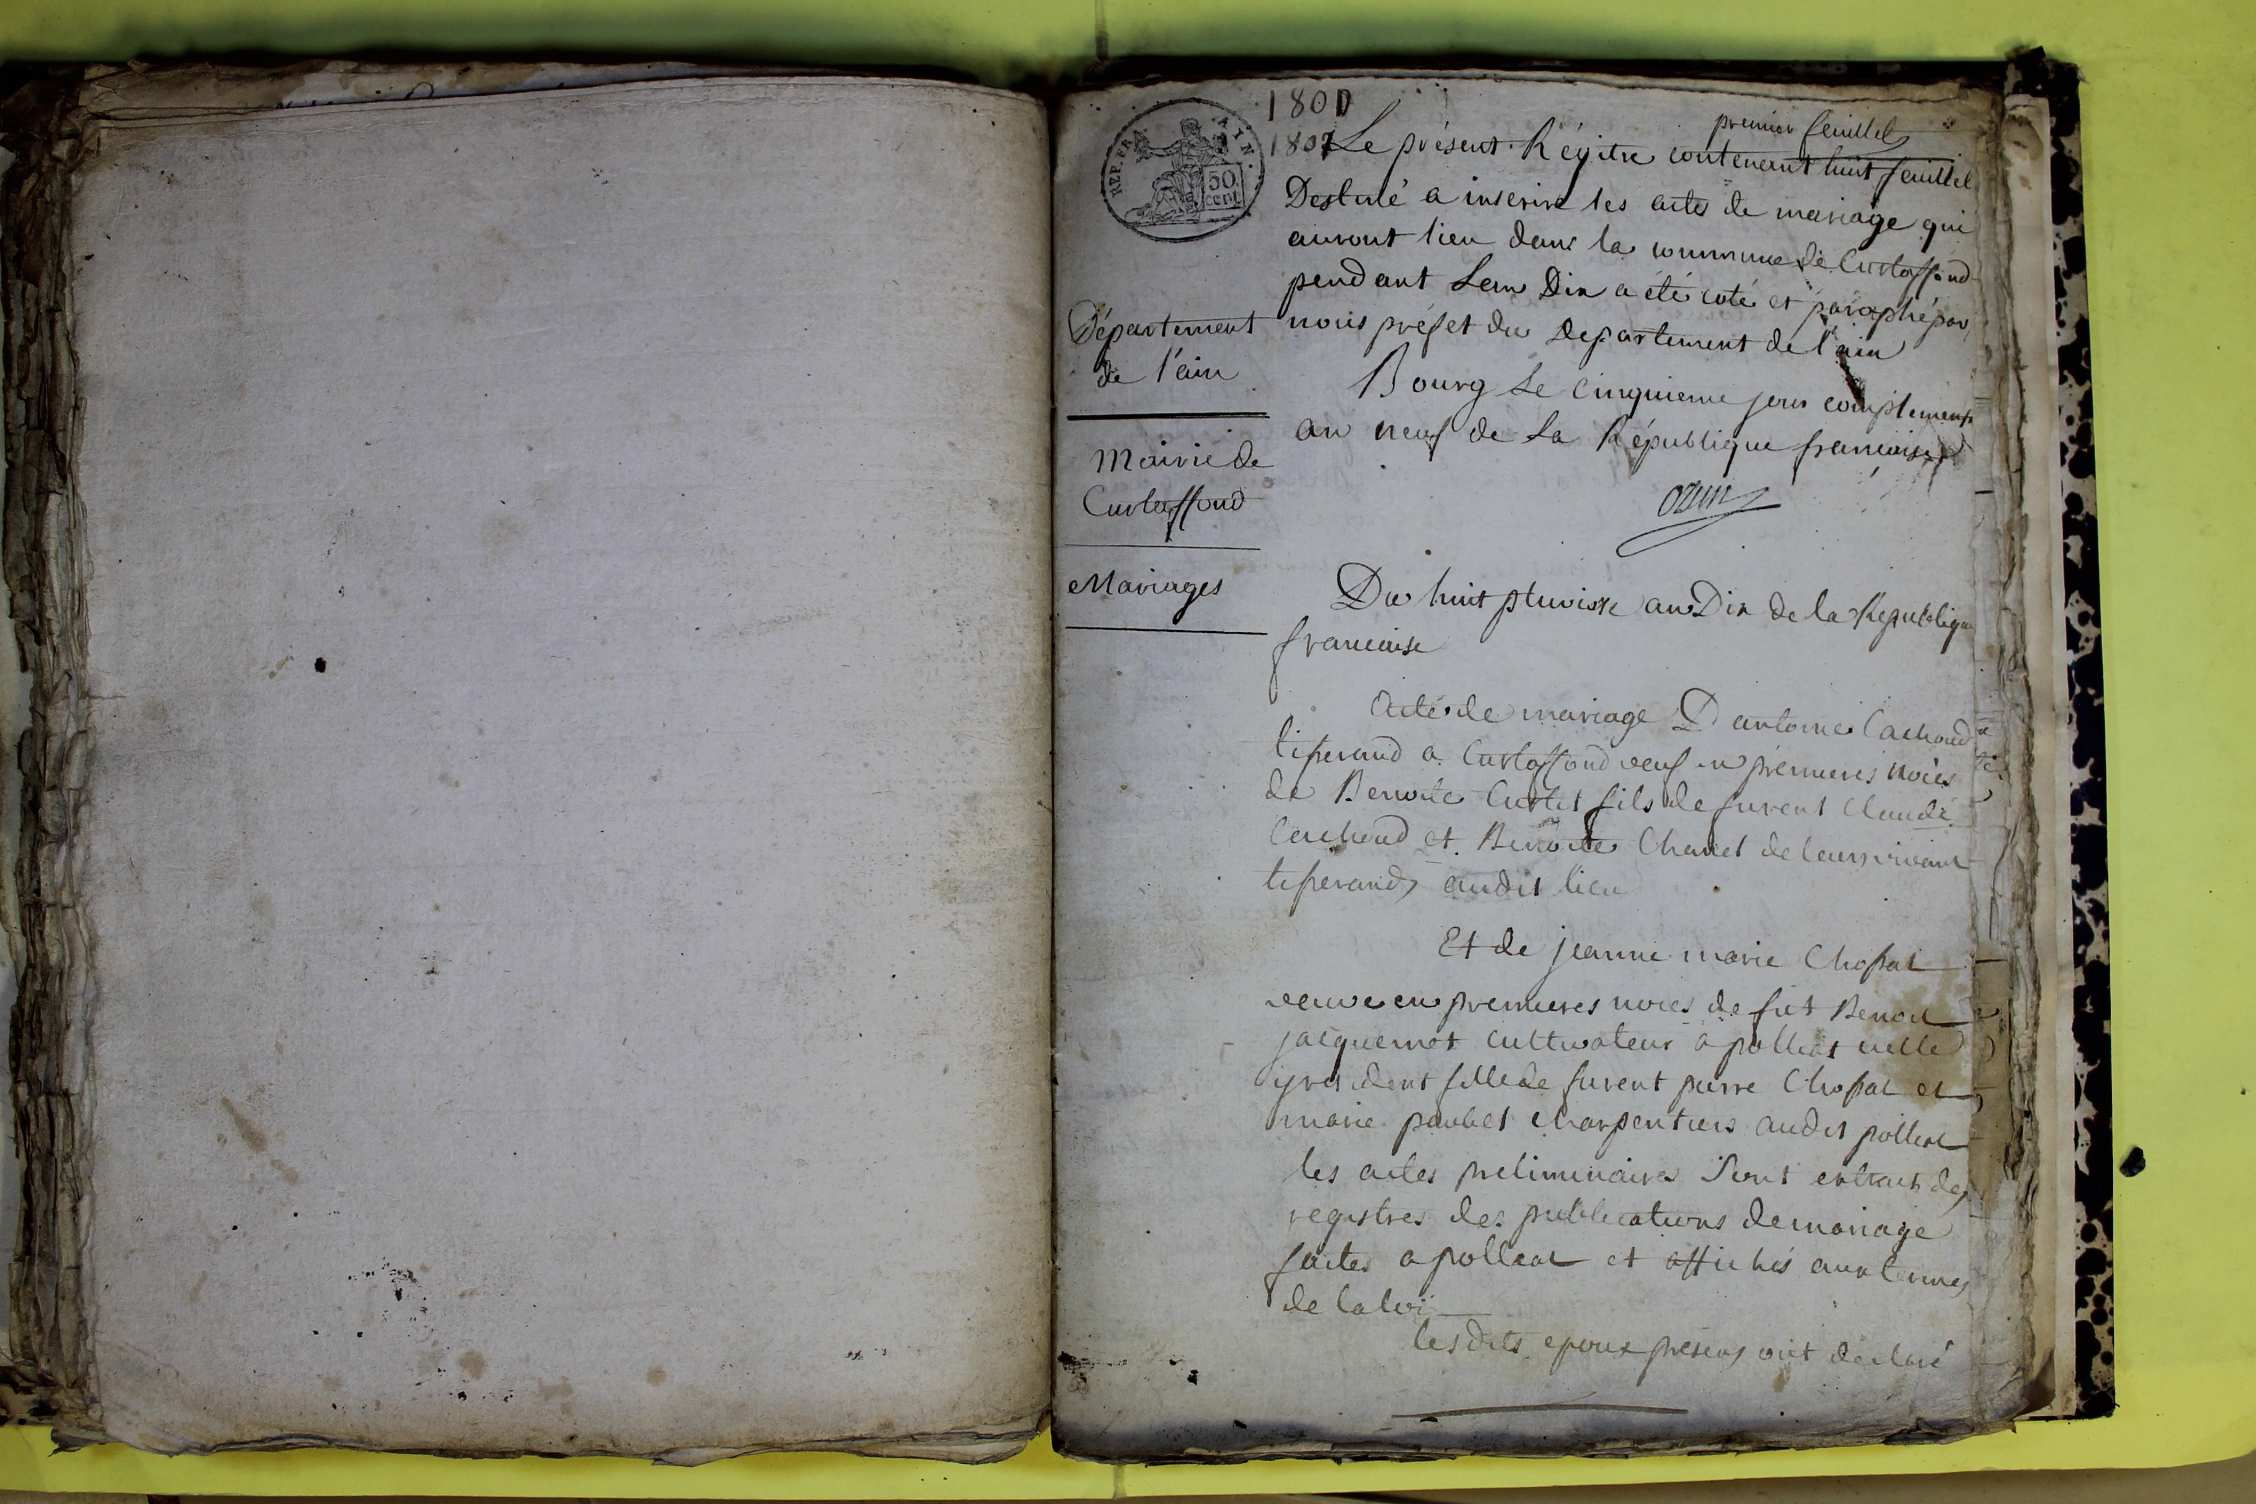 1801
1802
premier feuillet
REP. FRA. AIN.
50 cent.
Le présent Régitre contenant huit feuillet
Destiné a inserire les actes de mariage qui
auront lieu dans la commune de Curtaffond
pendant Lan Dix a été coté et paraphé par
nous préfet du Departement de l'ain
Bourg Le Cinquieme jour complement
an neuf de La République francaise
ozun
Département
de l'ain
Mairie de
Curtaffond
Mariages
Du huit pluviose an Dix de la Republique
francaise
Acte de mariage D antoine Cachoud
tiserand a Curtaffond veuf en premieres noces
de Benoite Curtet fils de furent Claude
Cachoud et Benoite Chanel de leurs vivant
tiserands audit lieu
Et de jeanne marie Chossat
veuve en premieres noces de fut Benoit
jacquemet cultivateur a polliat icelle
y resident fille de furent pierre Chossat et
marie paubel charpentiers audit polliat
les actes preliminaires sont extraits des
registres des publications de mariage
faites a polliat et affichés aux termes
de la loi
lesdits epoux présens ont déclaré